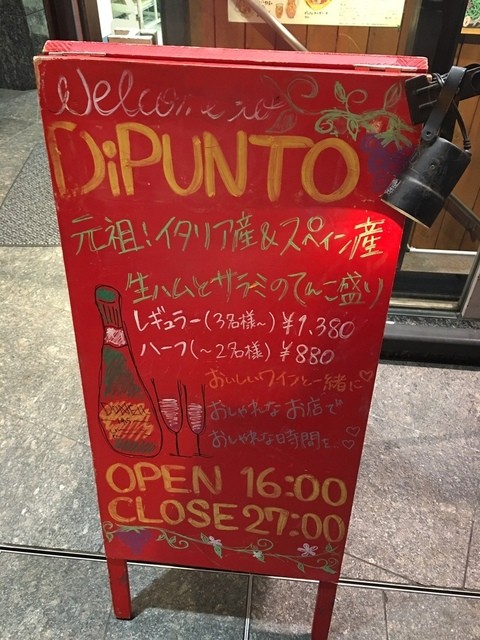 Welcome to
DiPUNTO
元祖!イタリア産&スペイン産
生ハムとサラミのてんこ盛り
レギュラー(3名様~)¥1,380
ハーフ(~2名様)¥880
おいしいワインと一緒に♡
おしゃれなお店で
おしゃれな時間を…♡
OPEN 16:00
CLOSE 27:00